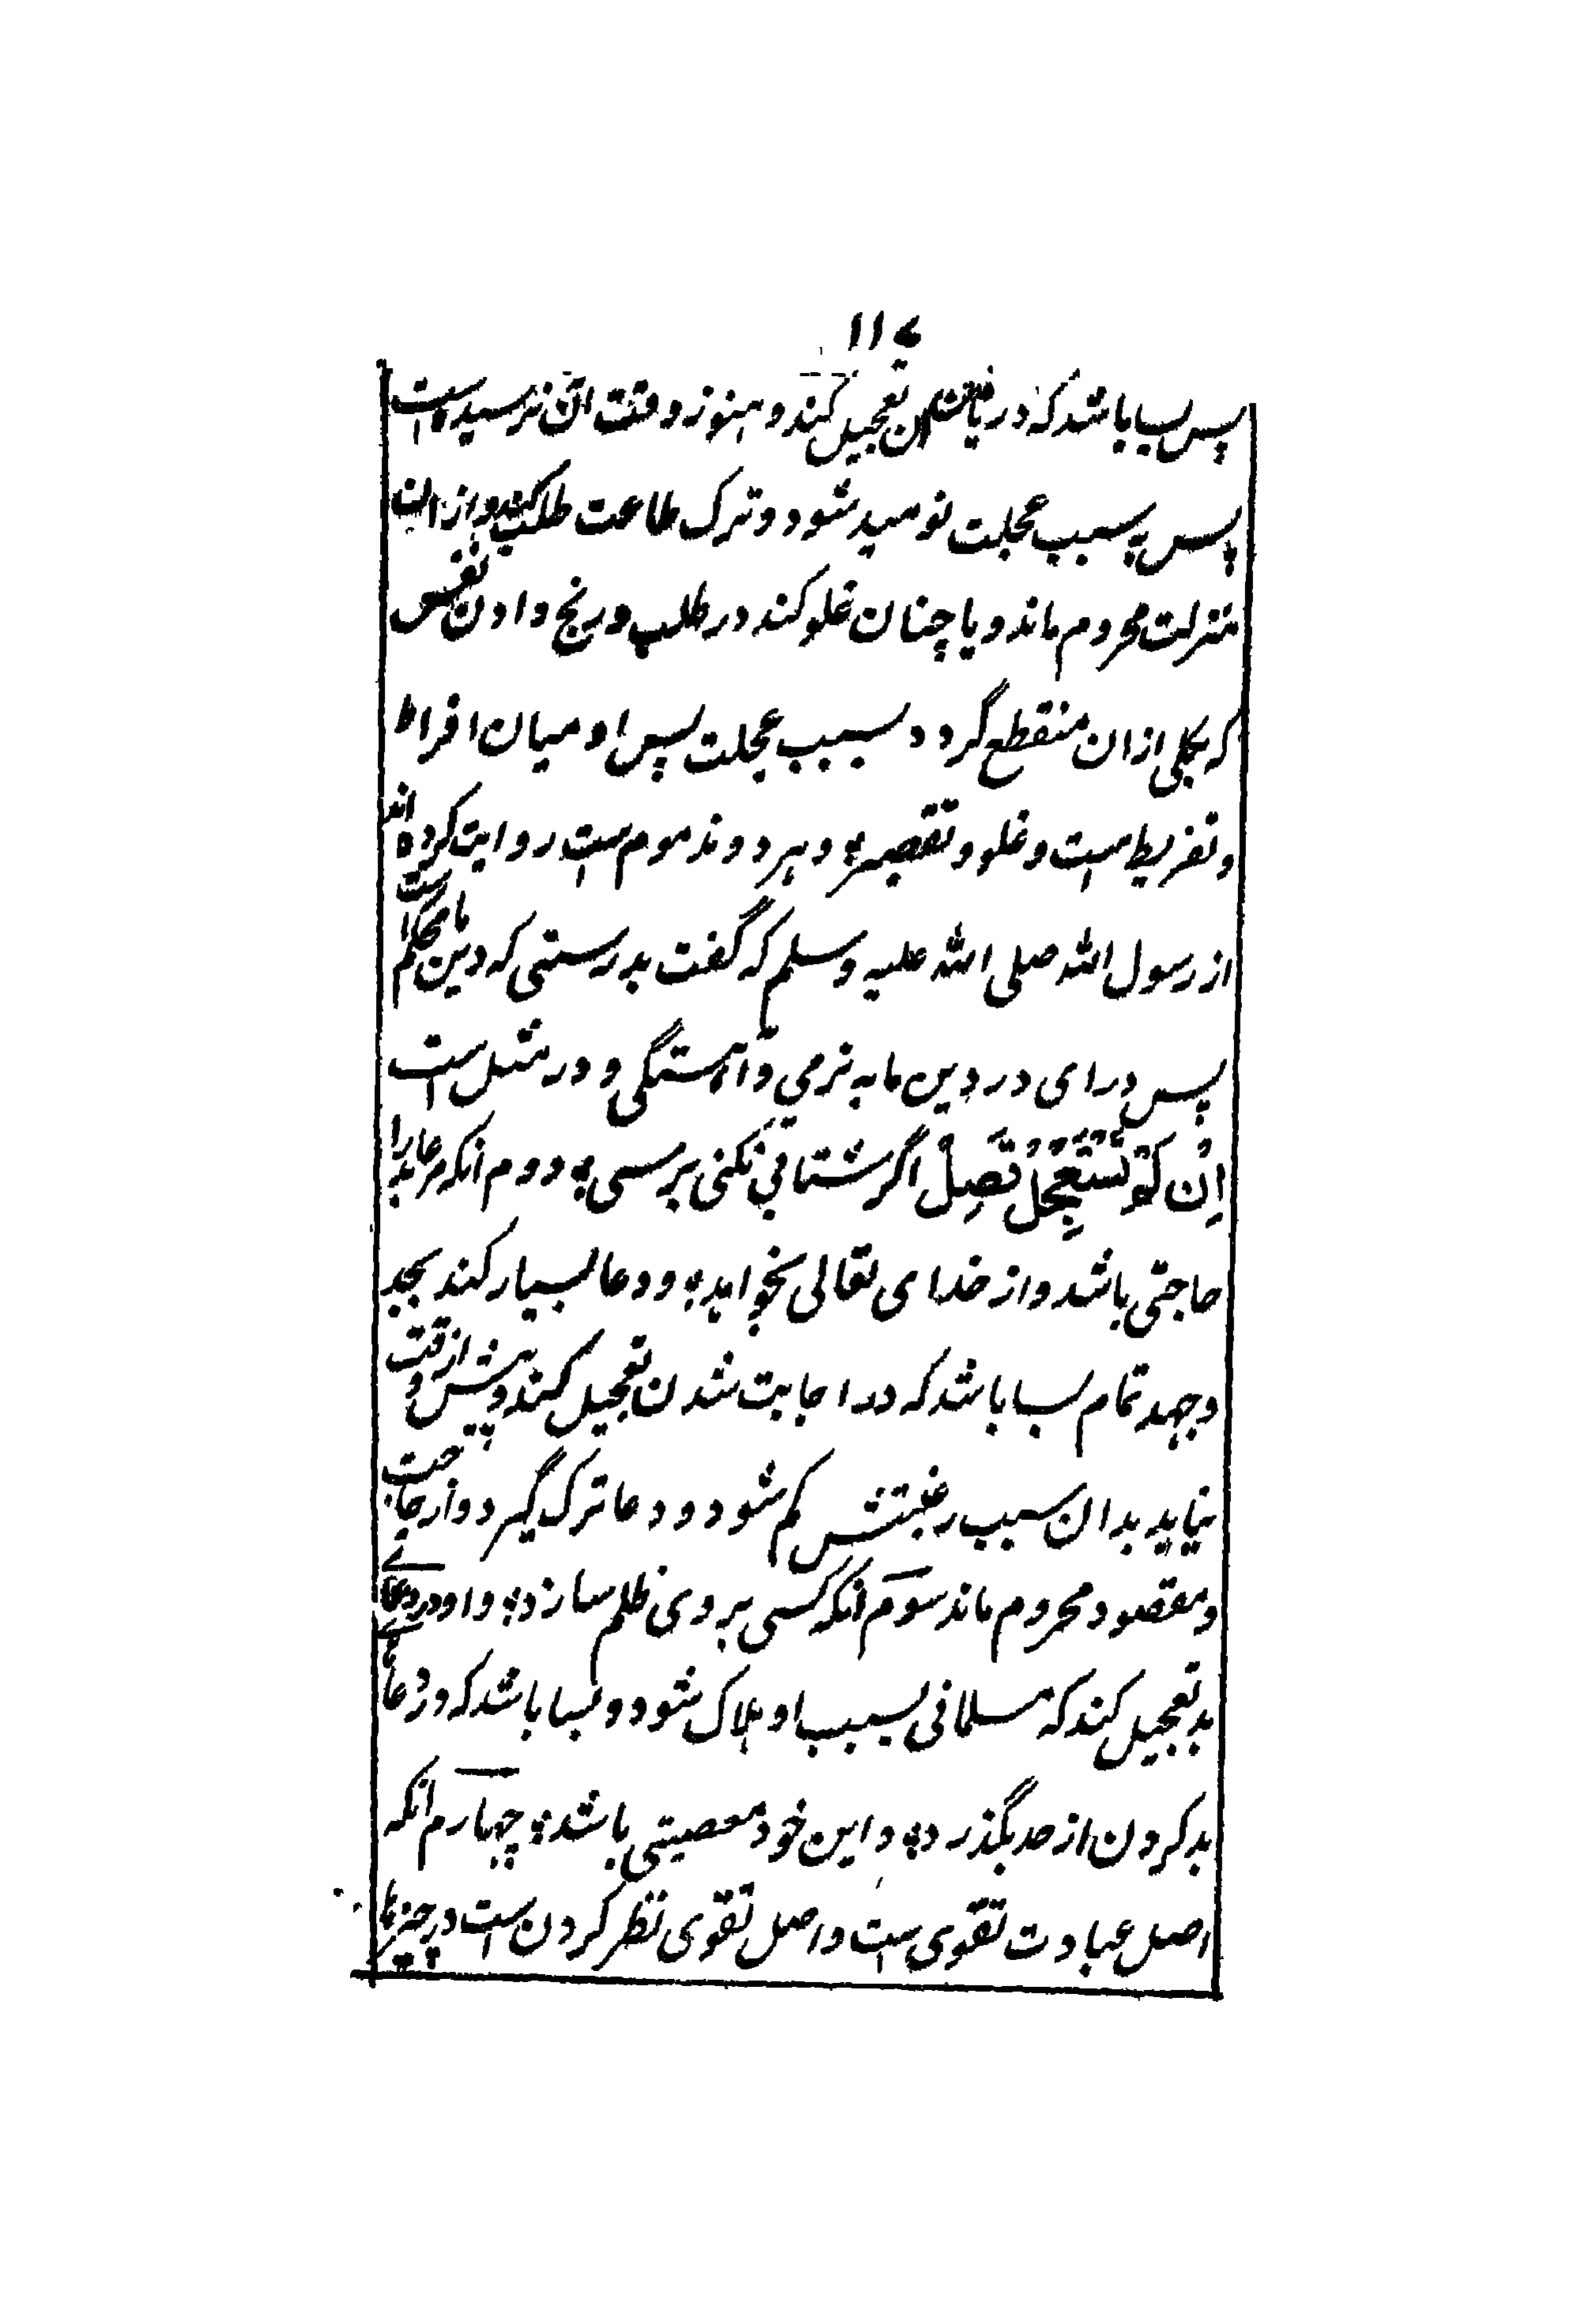 ۱۱۷
پس بسا باشد که در یافتن آن تعجیل کند و هنوز وقت آن نرسیده است
پس به سبب عجلت نومید شود و ترک طاعت طلب کند و از ان
منزلت محروم ماند و یا چنان غلو کند در طلب و رنج دادن نفس
که بکلی ازان منقطع گردد بسبب عجلت پس او میان افراط
و تفریط است و غلو و تقصیر ؛ و هر دو مذموم است روایت کرده اند
از رسول الله صلی الله علیه وسلم که گفت بدرستی که دین ما محکم است
پس درای در دین ما به نرمی و آهستگی و در مثل است
اِنْ لَمْ تَسْتَعْجِلْ تَصِلْ اگر شتابی نکنی برسی ؛ دوم انکه مر عابد را
حاجتی باشد و از خدای تعالی بخواهد ؛ و دعا بسیار کند بجد
و جهد تمام بسا باشد که در اجابت شدن تعجیل کند و پیش از وقت
نیابد بدان سبب رغبتش کم شود و دعا ترک گیرد و از حاجت
و مقصود محروم ماند سوم انکه کسی بر وی ظلم سازد ؛ و او در دعای
بد تعجیل کند که مسلمانی بسبب او هلاک شود و بسا باشد که در دعای
بد کردن از حد بگذرد ؛ و این خود معصیتی باشد ؛ چهارم انکه
اصل عبادت تقوی است و اصل تقوی نظر کردن است در چیزها